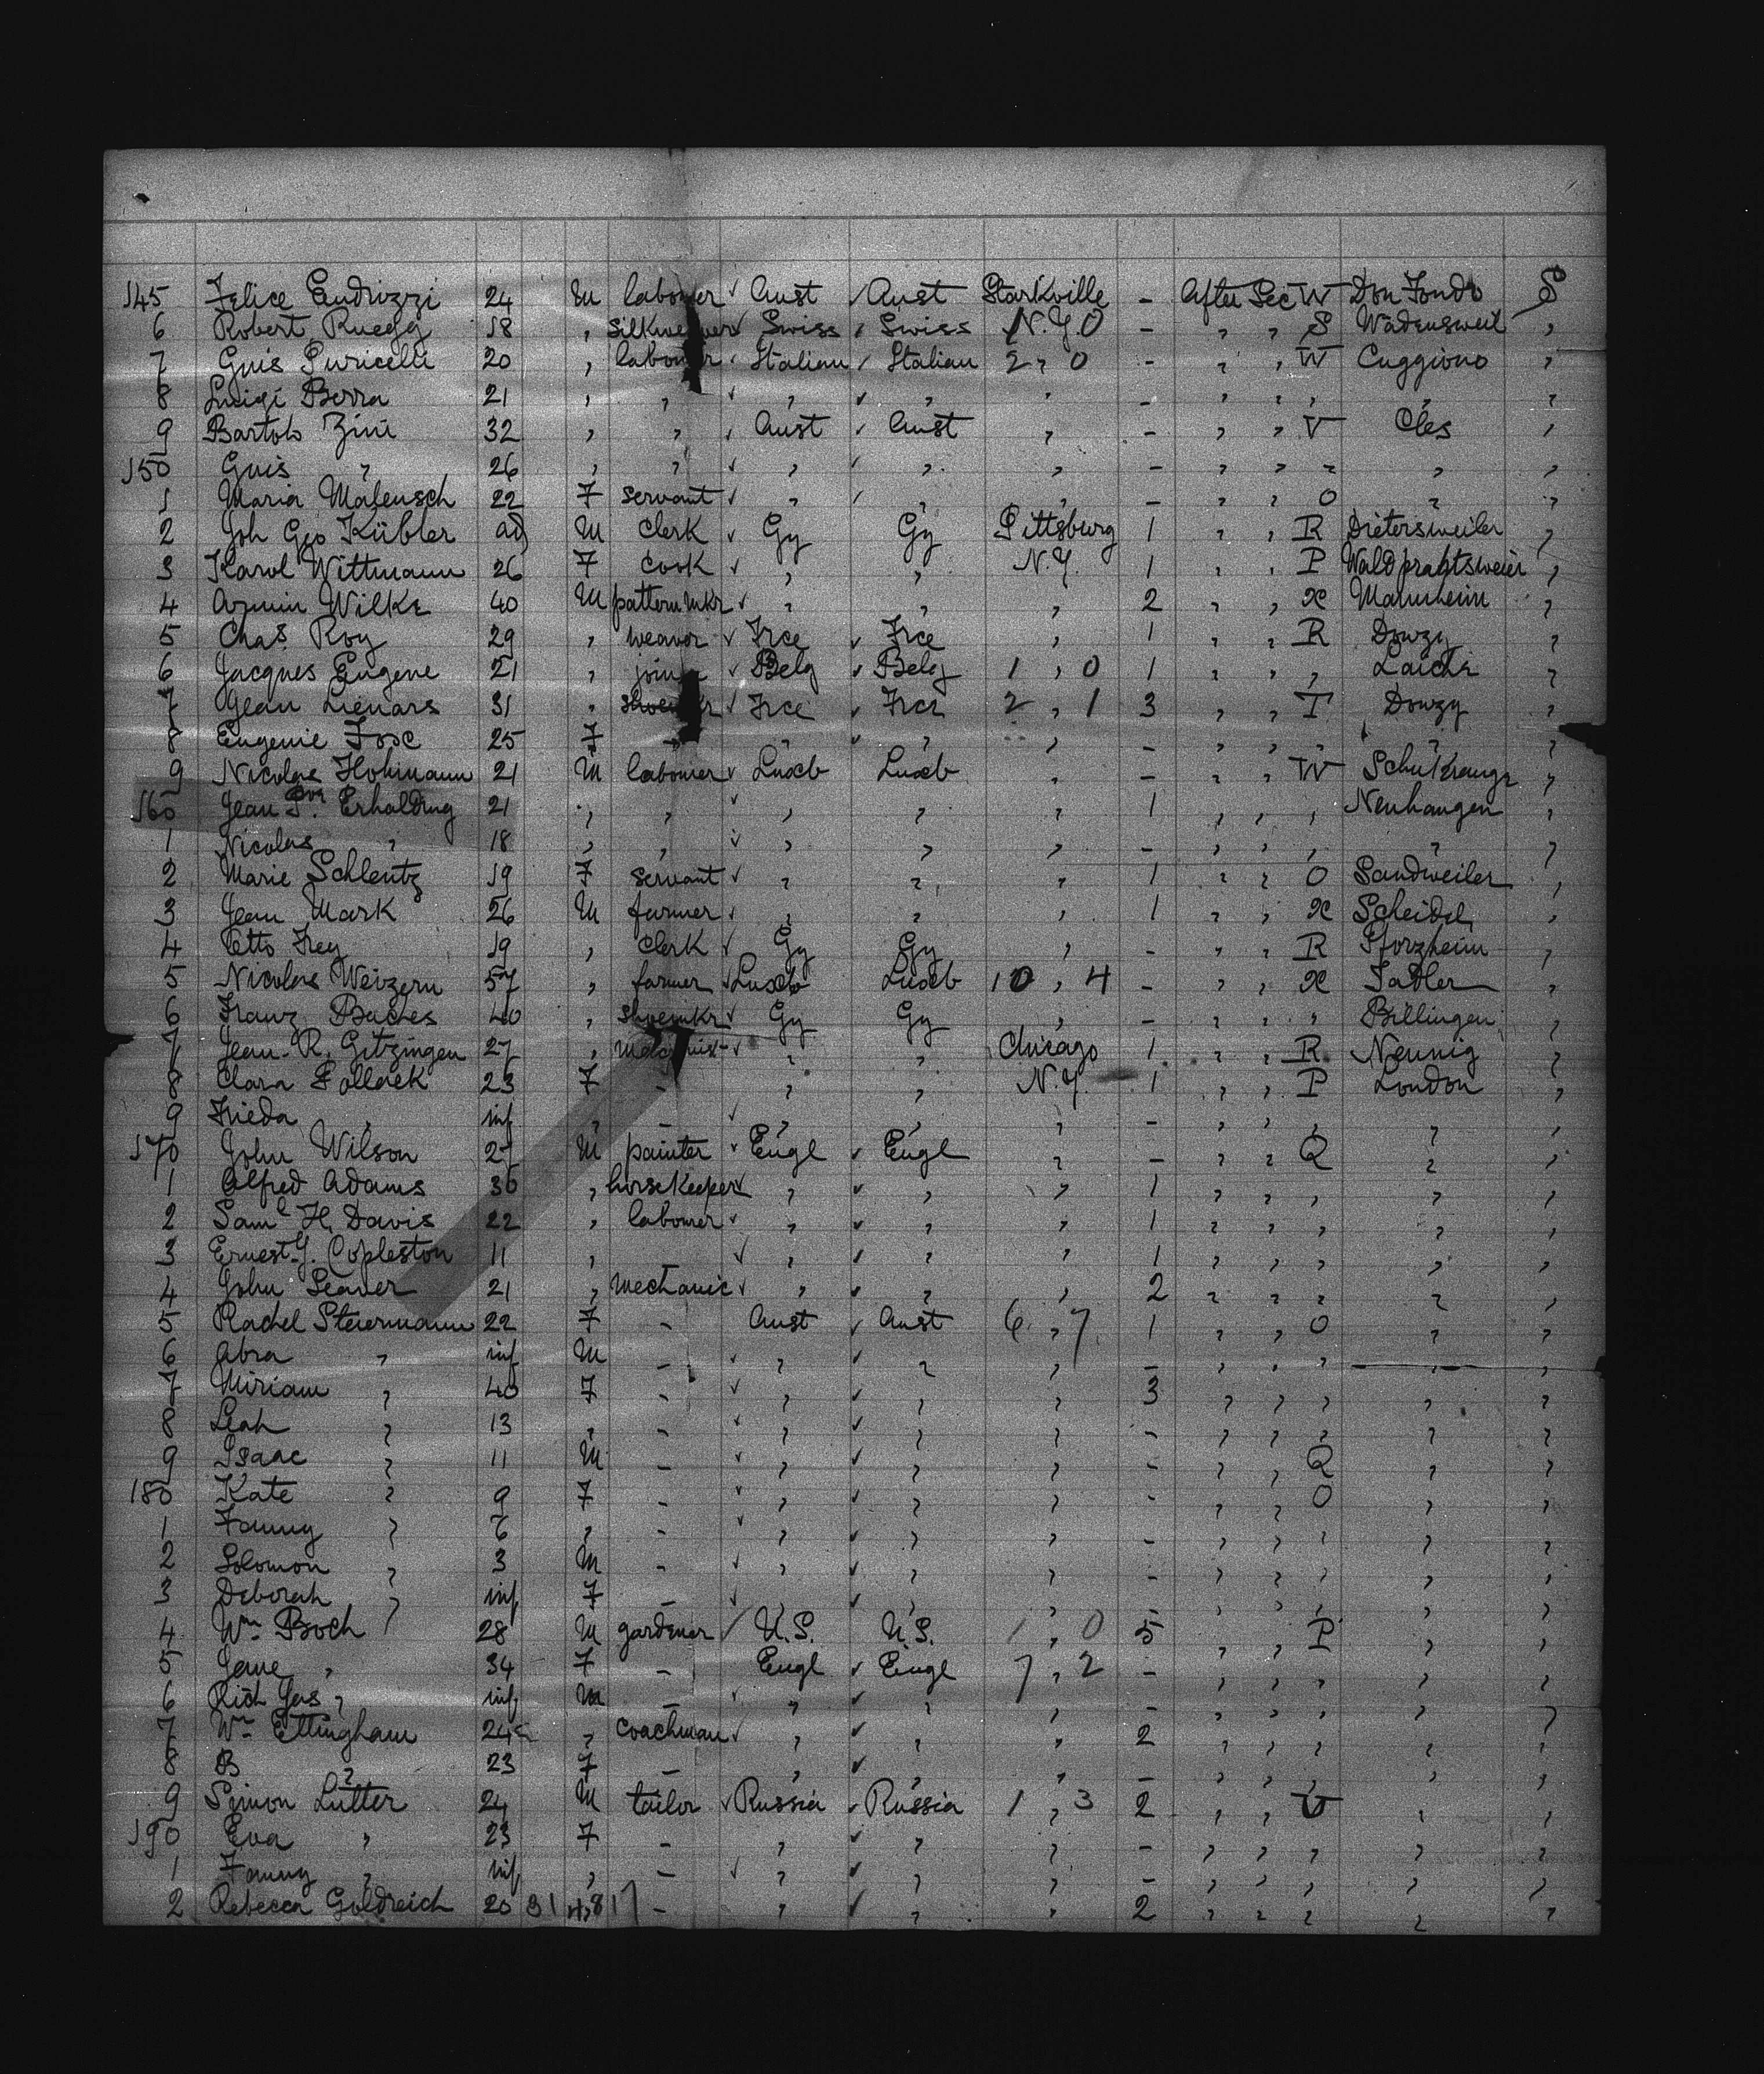 145 Felice Endrizzi 24 M labourer ✓ Aust ✓ Aust Starkville - After Sec W Don Fondo S
6 Robert Ruegg 18 " silkweaver ✓ Swiss ✓ Swiss N.Y. 0 - " " S Wädensweil "
7 Guis Puricelli 20 " labourer ✓ Italian ✓ Italian 2 " 0 - " " W Cuggiono "
8 Luigi Berra 21 " " ✓ " ✓ " " - " " " " "
9 Bartolo Zini 32 " " ✓ Aust ✓ Aust " - " " V Cles "
150 Guis " 26 " " ✓ " ✓ " " - " " " " "
1 Maria Malensch 22 F servant ✓ " ✓ " " - " " O " "
2 Joh Geo Kübler ad M clerk ✓ Gy Gy Pittsburg 1 " " R Dietersweiler "
3 Karol Wittmann 26 F cook ✓ " " N.Y. 1 " " P "
4 Armin Wilke 40 M pattern mkr ✓ " " " 2 " " X Mannheim "
5 Chas. Roy 29 " weaver ✓ Frce ✓ Frce " 1 " " R Douzy "
6 Jacques Eugene 21 " joiner ✓ Belg ✓ Belg 1 " 0 1 " " " Laiche "
7 Jean Lienars 31 " shoemkr ✓ Frce ✓ Frce 2 " 1 3 " " T Douzy "
8 Eugenie Fosc 25 F " " ✓ " " - " " " " "
9 Nicolas Hohmann 21 M labourer ✓ Luxb Luxb " - " " W "
160 Jean Erhalding 21 " " ✓ " " " 1 " " " Neuhaugen "
1 Nicolas " 18 " " ✓ " " " - " " " " "
2 Marie Schlentz 19 F servant ✓ " " " 1 " " O Sandweiler "
3 Jean Mark 26 M farmer ✓ " " " 1 " " X Scheidel "
4 Otto Frey 19 " clerk ✓ Gy Gy " - " " R Pforzheim "
5 Nicolas Weizern 57 " farmer ✓ Luxb Luxb 10 " 4 - " " X Sadler "
6 Franz Baches 40 " shoemkr ✓ Gy Gy " - " " " Billingen "
7 Jean R. Gitzingen 27 " Machinist ✓ " " Chicago 1 " " R Nennig "
8 Clara Pollack 23 F - " " N.Y. 1 " " P London "
9 Frieda " inf " - ✓ " " " - " " " " "
170 John Wilson 27 M painter ✓ Engl ✓ Engl " - " " Q " "
1 Alfred Adams 36 " horsekeeper ✓ " ✓ " " 1 " " " " "
2 Saml H. Davis 22 " labourer ✓ " ✓ " " 1 " " " " "
3 Ernest G. Copleston 11 " ✓ " ✓ " " 1 " " " " "
4 John Seaver 21 " mechanic ✓ " ✓ " " 2 " " " " "
5 Rachel Steuermann 22 F - Aust ✓ Aust 6 " 7 1 " " O " "
6 Abra " inf M - ✓ " ✓ " " - " " " " "
7 Miriam " 40 F - ✓ " ✓ " " 3 " " " " "
8 Leah " 13 " - ✓ " ✓ " " - " " " " "
9 Isaac " 11 M - ✓ " ✓ " " - " " Q " "
180 Kate " 9 F - ✓ " ✓ " " - " " O " "
1 Fanny " 6 " - ✓ " ✓ " " - " " " " "
2 Solomon " 3 M - ✓ " ✓ " " - " " " " "
3 Deborah " inf F - ✓ " ✓ " " - " " " " "
4 Wm Boch 28 M gardener ✓ U.S. U.S. 1 " 0 5 " " P " "
5 Jane " 34 F - Engl ✓ Engl 7 " 2 - " " " " "
6 Rich Jas " inf M - ✓ " ✓ " " - " " " " "
7 Wm Ettingham 24 " coachman ✓ " ✓ " " 2 " " " " "
8 B " 23 F - " ✓ " " - " " " " "
9 Simon Lutter 24 M tailor ✓ Russia ✓ Russia 1 " 3 2 " " U " "
190 Eva " 23 F - " ✓ " " - " " " " "
1 Fanny " inf " - ✓ " ✓ " " - " " " " "
2 Rebecca Goldreich 20 31 " 817 - " ✓ " " 2 " " " " "